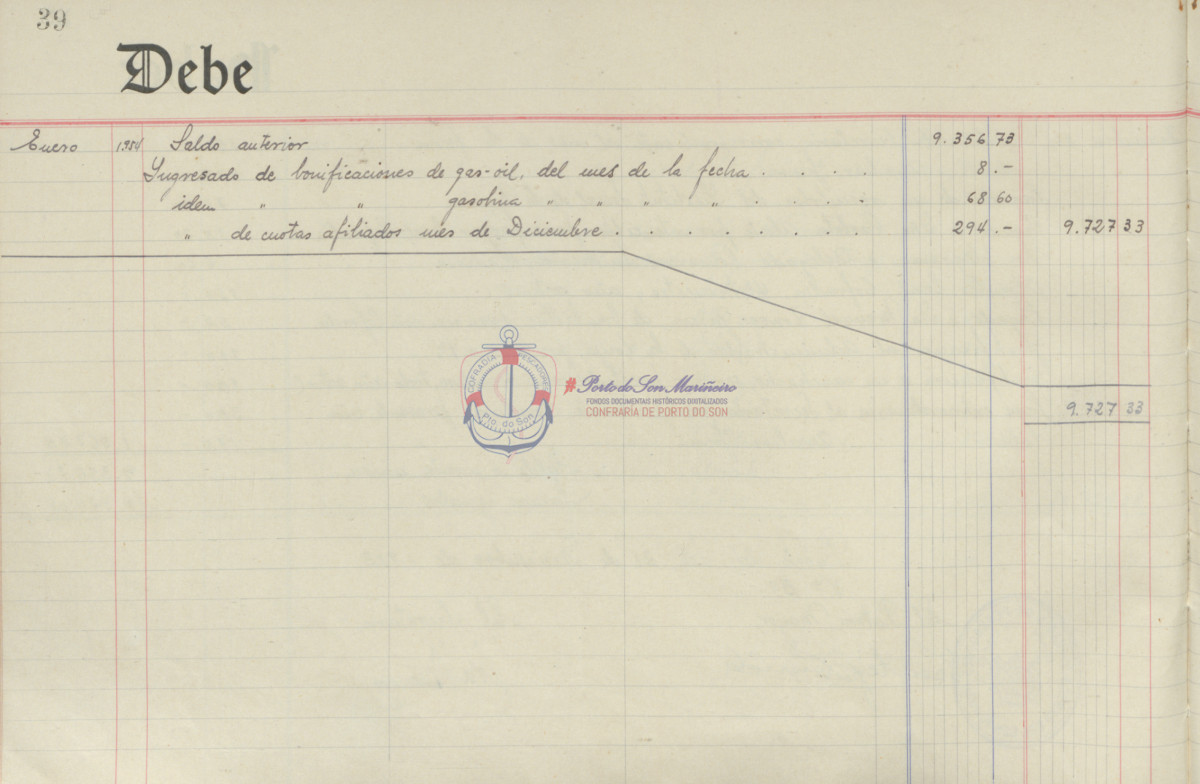 39
Debe
Enero 1954 Saldo anterior 9.356 73
Ingresado de bonificaciones de gas-oil, del mes de la fecha . . . . 8.-
idem " " gasolina " " " " . . . . 68 60
" de cuotas afiliados mes de Diciembre . . . . . . . . 294.- 9.727 33
9.727 33
COFRADIA PESCADORES
Pto. do Son
#Porto do Son Mariñeiro
FONDOS DOCUMENTAIS HISTÓRICOS DIXITALIZADOS
CONFRARÍA DE PORTO DO SON